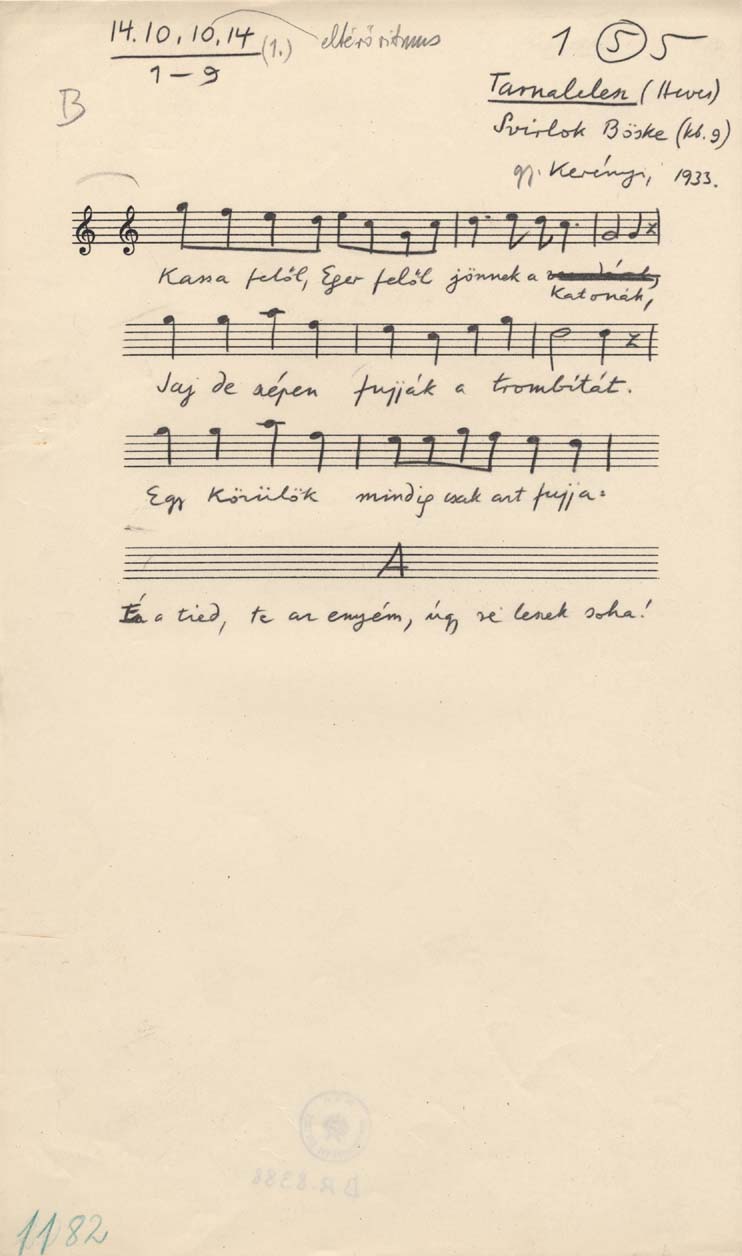 14.10, 10, 14 (1.) eltérő ritmus
1 – 9
1 5 5
B
Tarnalelesz (Heves)
Svirlok Böske (kb. 9)
gy. Kerényi, 1933.
Kassa felől, Eger felől jönnek a
katonák,
Jaj de szépen fujják a trombitát.
Egy körülök mindig csak azt fujja:
A
Én a tied, te az enyém, úgy se leszek soha!
BR 8388
1182